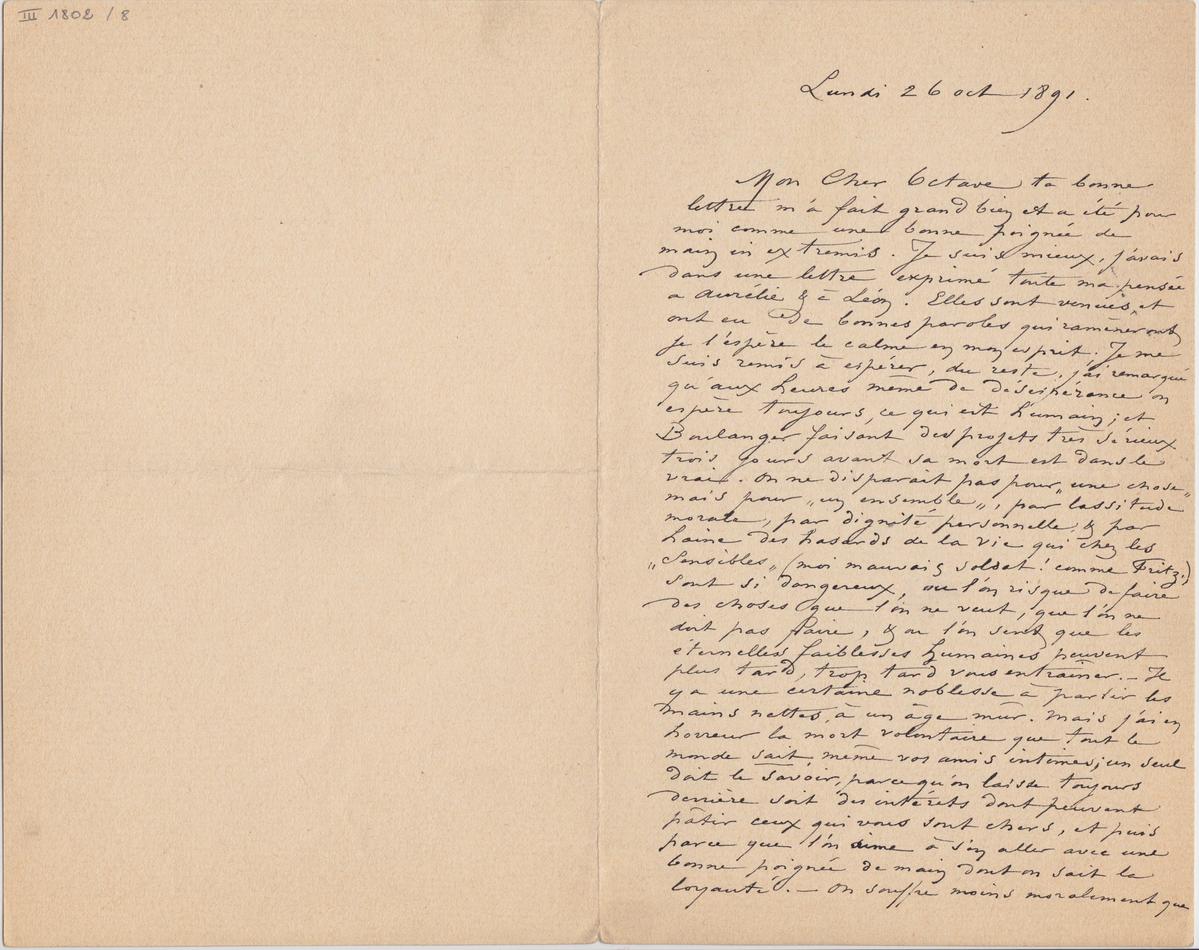 III 1802 / 8
Lundi 26 oct 1891.
Mon Cher Octave ta bonne
lettre m'a fait grand bien et a été pour
moi comme une bonne poignée de
main in extremis. Je suis mieux, j'avais
dans une lettre exprimé toute ma pensée
a Aurélie & à Léon. Elles sont venues, et
ont eu de bonnes paroles qui ramèneront
je l'espère le calme en mon esprit. Je me
suis remis à espérer, du reste, j'ai remarqué
qu'aux heures même de désespérance on
espère toujours, ce qui est humain; et
Boulanger faisant des projets très sérieux
trois jours avant sa mort est dans le
vrai. On ne disparait pas pour „une chose„
mais pour „un ensemble„, par lassitude
morale, par dignité personnelle & par
haine des hasards de la vie qui chez les
„Sensibles„ (moi mauvais soldat! comme Fritz!)
sont si dangereux, ou l'on risque de faire
des choses que l'on ne veut, que l'on ne
doit pas faire, & ou l'on sent que les
éternelles faiblesses humaines peuvent
plus tard, trop tard vous entraîner. — Il
y a une certaine noblesse à partir les
mains nettes, à un âge mûr. Mais j'ai en
horreur la mort volontaire que tout le
monde sait, même vos amis intimes; un seul
doit le savoir, parce qu'on laisse toujours
derrière soit des intérêts dont peuvent
pâtir ceux qui vous sont chers, et puis
parce que l'on aime à s'en aller avec une
bonne poignée de main dont on sait la
loyauté. — On souffre moins moralement que